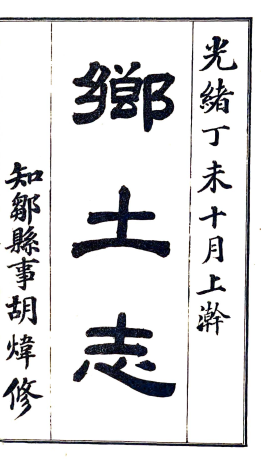 光緒丁未十月上澣
鄉土志
知鄒縣事胡煒修